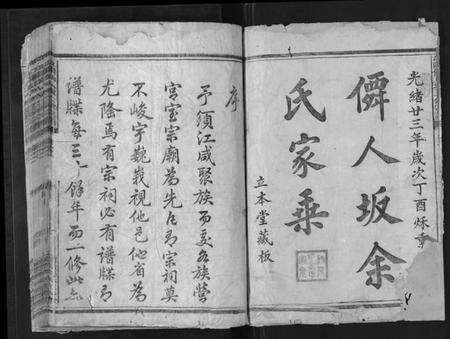 光緒廿三年歲次丁酉秌重
僊人坂余
氏家乘
立本堂藏板
序
予須江咸聚族而處各族營
宮室宗廟為先凡有宗祠莫
不峻宇巍峩視他邑他省為
尤隆焉有宗祠必有譜牒而
譜牒每三十餘年而一修此